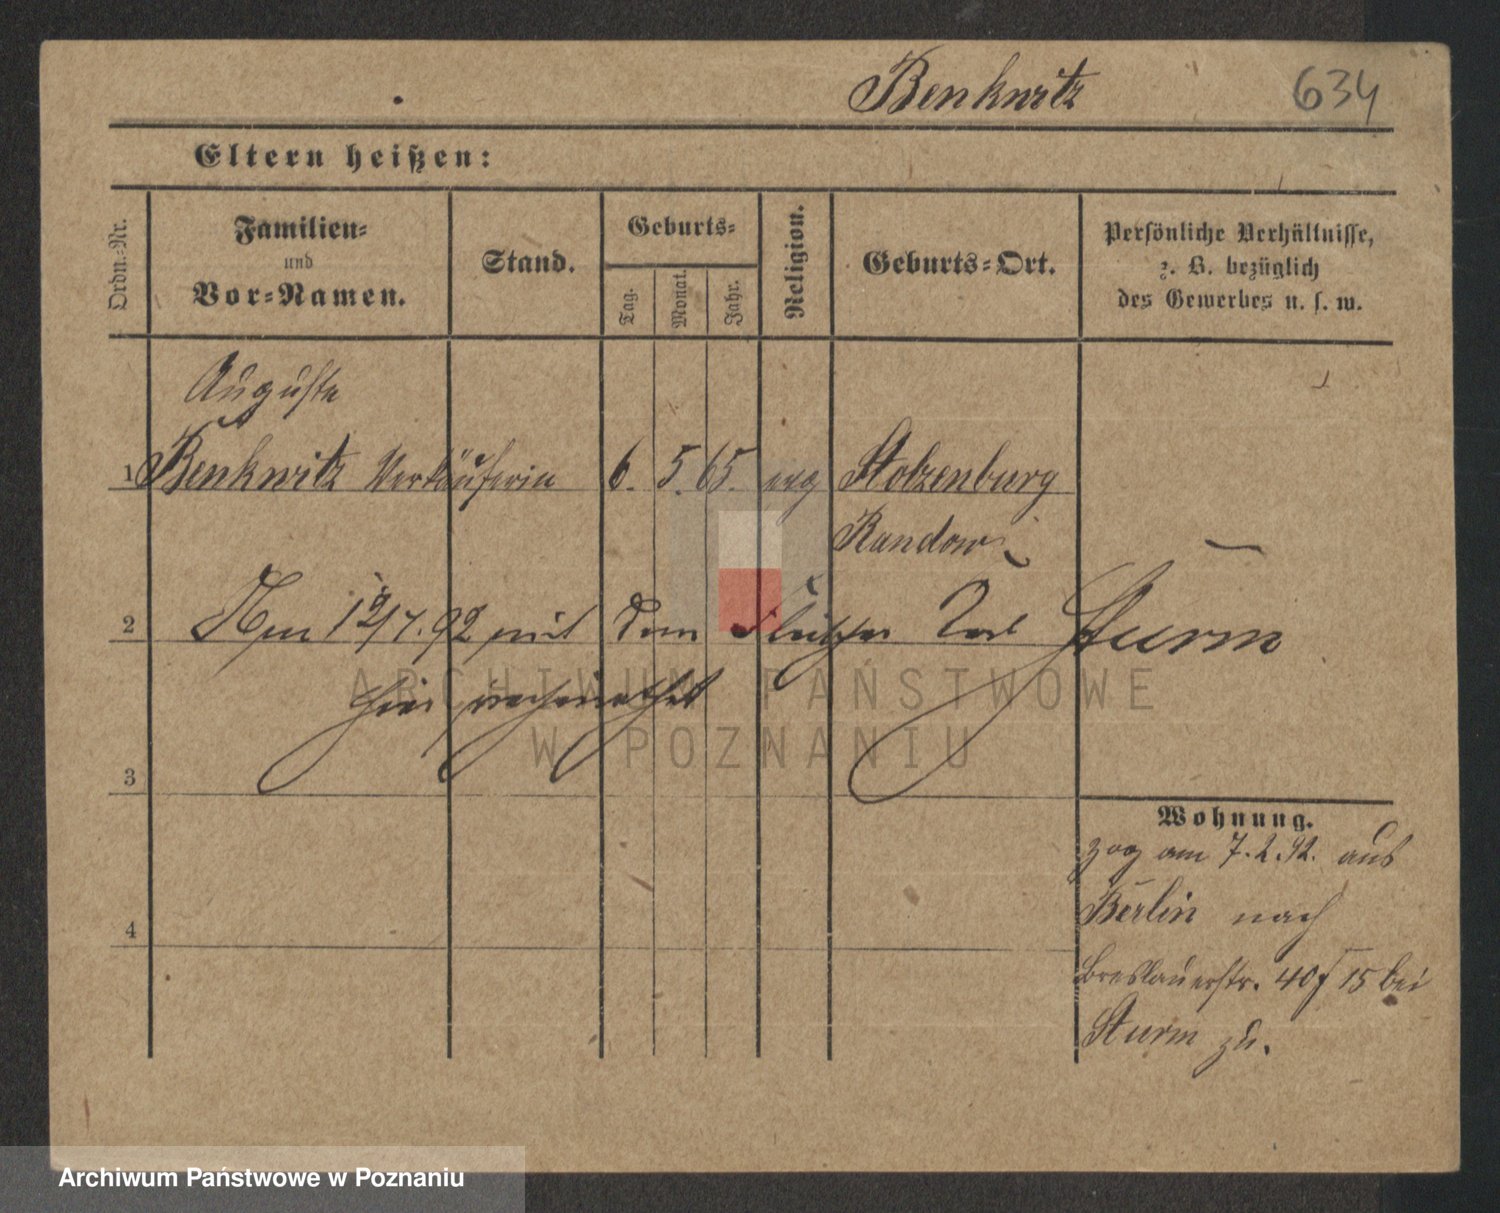 Benkwitz 634
Eltern heißen:
Ordn.-Nr.
Familien-
und
Vor-Namen.
Stand.
Geburts-
Tag. Monat. Jahr.
Religion.
Geburts-Ort.
Persönliche Verhältnisse,
z. B. bezüglich
des Gewerbes u. s. w.
Auguste
1 Benkwitz Verkäuferin 6. 5. 65. evg Stolzenburg
Randow
2 Am 12/7.92 mit dem Carl Sturm
hier verheirathet
3
ARCHIWUM PAŃSTWOWE
W POZNANIU
Wohnung.
zog am 7.2.92. aus
Berlin nach
4
Breslauerstr. 40 15 bei
Sturm zu.
Archiwum Państwowe w Poznaniu